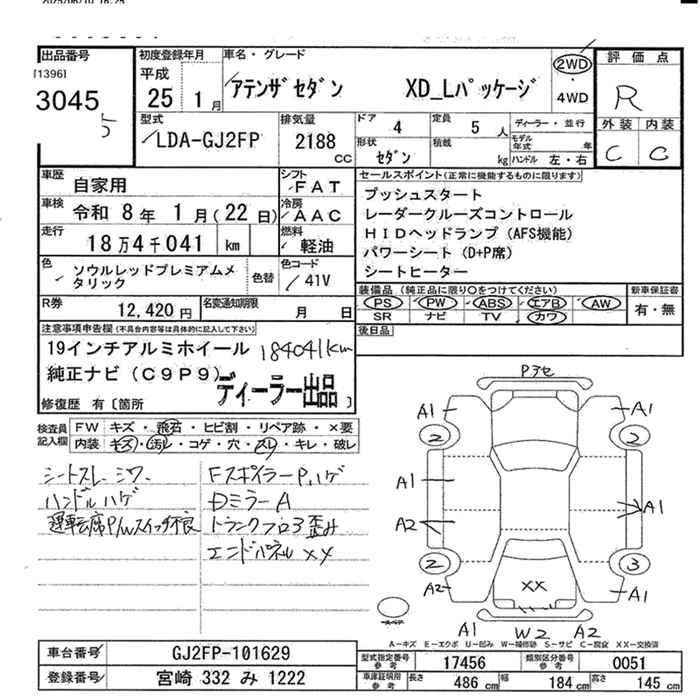 2025/06/10 18:25
出品番号 初度登録年月 車名・グレード 2WD 評価点
[1396] 平成 アテンザセダン XD_Lパッケージ ・ R
3045 25 1月 4WD
5 型式 排気量 ドア 4 定員 5人 ディーラー・並行 外装 内装
LDA-GJ2FP 2188 cc 形状 セダン 積載 kg モデル年式 年 ハンドル 左・右 C C
車歴 自家用 シフト FAT セールスポイント(正常に機能するものに限ります)
車検 令和8年 1月(22日) 冷房 AAC プッシュスタート
レーダークルーズコントロール
走行 18万4千041 km 燃料 軽油 HIDヘッドランプ(AFS機能)
パワーシート(D+P席)
色 ソウルレッドプレミアムメタリック 色替 色コード 41V シートヒーター
装備品(純正品に限り○をつけてください) 新車保証書
R券 12,420円 名変通知期限 月 日 PS PW ABS エアB AW 有・無
SR ナビ TV カワ
注意事項申告欄(不具合内容等は具体的に記入して下さい) 後日品
19インチアルミホイール 184041km
純正ナビ(C9P9) ディーラー出品
修復歴 有〔箇所 〕
検査員記入欄 FW キズ・飛石・ヒビ割・リペア跡・×要
内装 キズ・汚レ・コゲ・穴・スレ・キレ・破レ
シートスレ シワ FスポイラーP,ハゲ
ハンドルハゲ DミラーA
運転席P/Wスイッチ不良 トランクフロア歪み
エンドパネル XX
Pアセ
A1 A1
2 2
A1 A1
A2
2 3
A2 XX A1
A1 W2 A2
A-キズ E-エクボ U-凹み W-補修跡 S-サビ C-腐食 XX-交換済
車台番号 GJ2FP-101629 型式指定番号 参考 17456 類別区分番号 参考 0051
登録番号 宮崎 332 み 1222 車庫証明用 参考 長さ 486cm 幅 184cm 高さ 145cm